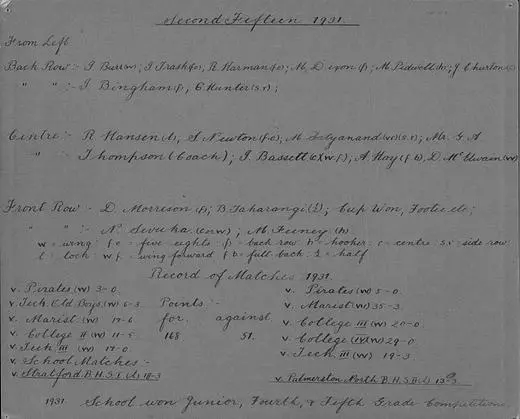 Second Fifteen 1931.
From Left
Back Row :- I Burr(w); I Trask(fe), R Harman(fe); M. Dixon(f); M Pidwell(h); J Churton(c)
" " :- I Bingham(f), C Hunter(s.r);
Centre :- R Hansen(l), S Newton(f.e); M Satyanand(w)(s.r); Mr. G A
" Thompson (Coach); I. Bassett(c)(w.f); A Hay(f b), D McElwain(w)
Front Row - D Morrison(f); B. Taharangi(½); Cup Won, Footie etc;
" " :- N. Sivuka (c or w); M. Feeney(h)
w = wing: f e = five eights: f = back row h = hooker: c = centre. s.r = side row
l = lock: w f = wing forward f b = full back. ½ = half
Record of Matches 1931.
v. Pirates(w) 3-0 v. Pirates(w) 5-0.
v. Tech. Old Boys(w) 6-3 Points :- v. Marist(w) 35-3
v. Marist(w) 19-6 for against v. College III(w) 20-0
v. College II(w) 11-5 168 51. v. College IV(w) 29-0
v. Tech. III(w) 17-0 v. Tech. III(w) 19-3
v. School Matches -
v. Stratford B.H.S. I.(l) 18-3 v. Palmerston North B.H.S II(l) 13-3
1931. School won Junior, Fourth, & Fifth Grade Competitions